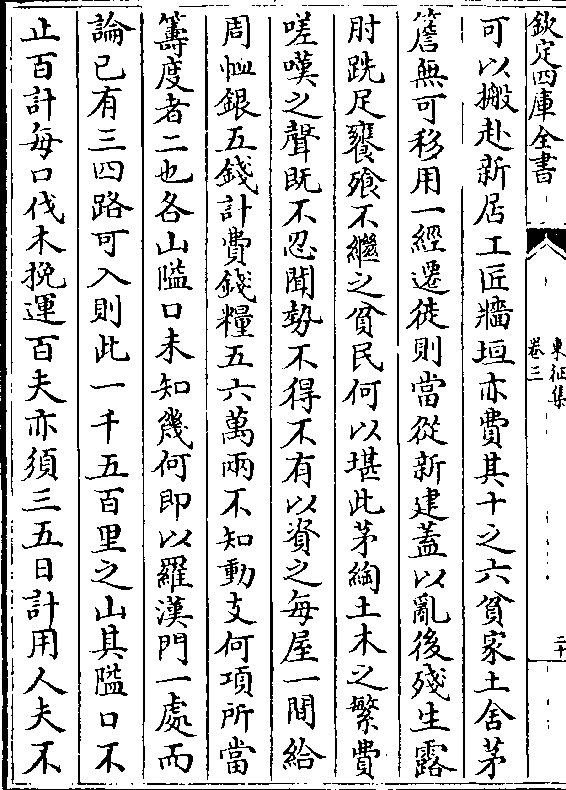 欽定四庫全書
東征集
卷三
二十
可以搬赴新居工匠牆垣亦費其十之六貧家土舍茅
簷無可移用一經遷徙則當從新建蓋以亂後殘生露
肘跣足饔飧不繼之貧民何以堪此茅綯土木之繁費
嗟嘆之聲既不忍聞勢不得不有以資之每屋一間給
周恤銀五錢計費錢糧五六萬兩不知動支何項所當
籌度者二也各山隘口未知幾何即以羅漢門一處而
論已有三四路可入則此一千五百里之山其隘口不
止百計每口伐木挽運百夫亦須三五日計用人夫不